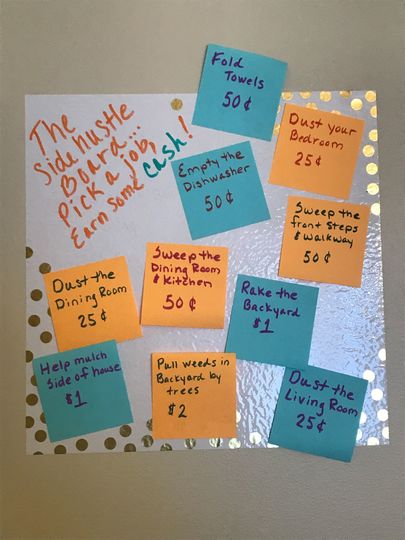 The
Side hustle
Board...
Pick a job,
Earn some cash!
Fold
Towels
50¢
Dust your
Bedroom
25¢
Empty the
Dishwasher
50¢
Sweep the
front Steps
& Walkway
50¢
Sweep the
Dining Room
& Kitchen
50¢
Dust the
Dining Room
25¢
Rake the
Backyard
$1
Help mulch
Side of house
$1
Pull weeds in
Backyard by
trees
$2
Dust the
Living Room
25¢